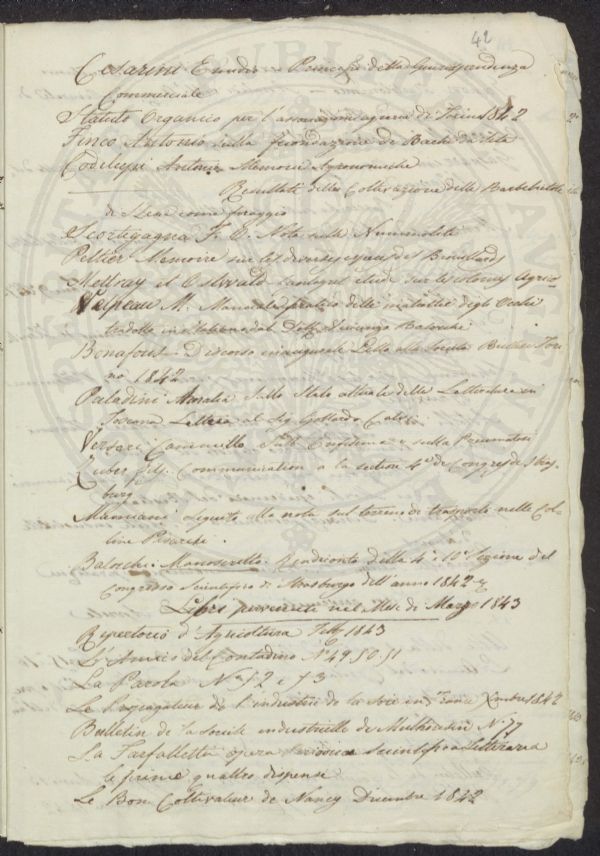 42
Cesarini Erudio Principi della Corrispondenza
Commerciale
Statuto Organico per l'associazione agraria di Torino 1842
Finco Antonio sulla fecondazione de Bachi da Seta
Codelupi Antonio Memorie Agronomiche
Resultati della Coltivazione della Barbabietola
di Slesia come foraggio
Scortegagna F. O. Nota sulle Nummoliti
Peltier Memoire sur les diverses especes des Brouillards
Mettray et Ostwald etude sur les colonies Agric
Velpeau M. Manuale pratico delle malattie degli Occhi
tradotto in italiano dal Dott. Vincenzo Balocchi
Bonafous Discorso inaugurale Letto alla Società Tori
no 1842
Paladini Amalia Sullo Stato attuale della Letteratura in
Toscana Lettera al Sig. Gottardo Calvi
Versari Cammillo Sull' Enfisema e sulla
fils. Communication a la section 4e du Congres de Stras
burg
Mamiani Seguito alla nota sul terreno di trasporto nelle Col
line Pesaresi.
Balocchi Manoscritto. Rendiconto della 4a e 10a Sezione del
Congresso Scientifico di Strasburgo dell'anno 1842
Libri pervenuti nel Mese di Marzo 1843
Repertorio d'Agricoltura Feb. 1843
L'Amico del Contadino No 49.50.51
La Parola No 52 e 53
Le Propagateur de l'industrie de la Soie en France Xambre 1842
Bulletin de la Societé industrielle de Mulhausen No 77
La Farfalletta opera periodica Scientifica Letteraria
le prime quattro dispense
Le Bon Coltivateur de Nancy Dicembre 1842